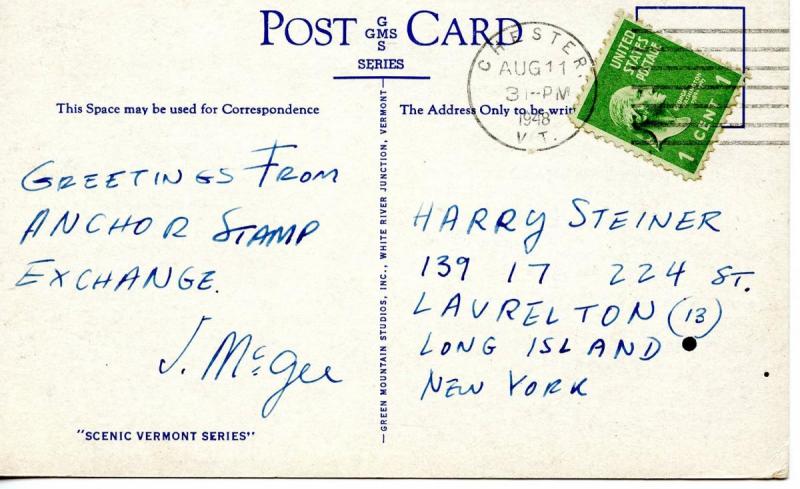 POST CARD
G
GMS
S
SERIES
CHESTER,
AUG 11
3 - PM
1948
VT.
UNITED
STATES
POSTAGE
WASHINGTON
1 CENT 1
This Space may be used for Correspondence
The Address Only to be writ
GREETINGS FROM
ANCHOR STAMP
EXCHANGE.
J. McGee
"SCENIC VERMONT SERIES"
—GREEN MOUNTAIN STUDIOS, INC., WHITE RIVER JUNCTION, VERMONT—
HARRY STEINER
139 17 224 ST.
LAURELTON (13)
LONG ISLAND
NEW YORK